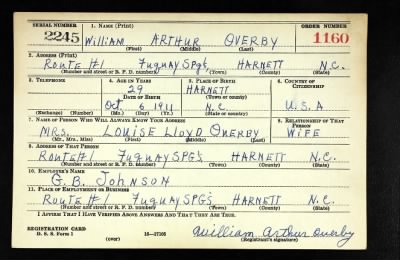 SERIAL NUMBER 1. NAME (Print) ORDER NUMBER
2245 William ARTHUR OVERBY 1160
(First) (Middle) (Last)
2. ADDRESS (Print)
Route #1 Fuquay Spgs, HARNETT N.C.
(Number and street or R. F. D. number) (Town) (County) (State)
3. TELEPHONE 4. AGE IN YEARS 5. PLACE OF BIRTH 6. COUNTRY OF CITIZENSHIP
29 HARNETT
DATE OF BIRTH (Town or county)
Oct. 6 1911 N.C. U.S.A
(Exchange) (Number) (Mo.) (Day) (Yr.) (State or country)
7. NAME OF PERSON WHO WILL ALWAYS KNOW YOUR ADDRESS 8. RELATIONSHIP OF THAT PERSON
MRS. LOUISE LLOYD OVERBY WIFE
(Mr., Mrs., Miss) (First) (Middle) (Last)
9. ADDRESS OF THAT PERSON
Route #1 Fuquay SPGs HARNETT N.C.
(Number and street or R. F. D. number) (Town) (County) (State)
10. EMPLOYER'S NAME
G.B. JOHNSON
11. PLACE OF EMPLOYMENT OR BUSINESS
Route #1 Fuquay SPGs HARNETT N.C.
(Number and street or R. F. D. number) (Town) (County) (State)
I AFFIRM THAT I HAVE VERIFIED ABOVE ANSWERS AND THAT THEY ARE TRUE.
REGISTRATION CARD
D. S. S. Form 1 16—17105 William Arthur Overby
(over) (Registrant's signature)